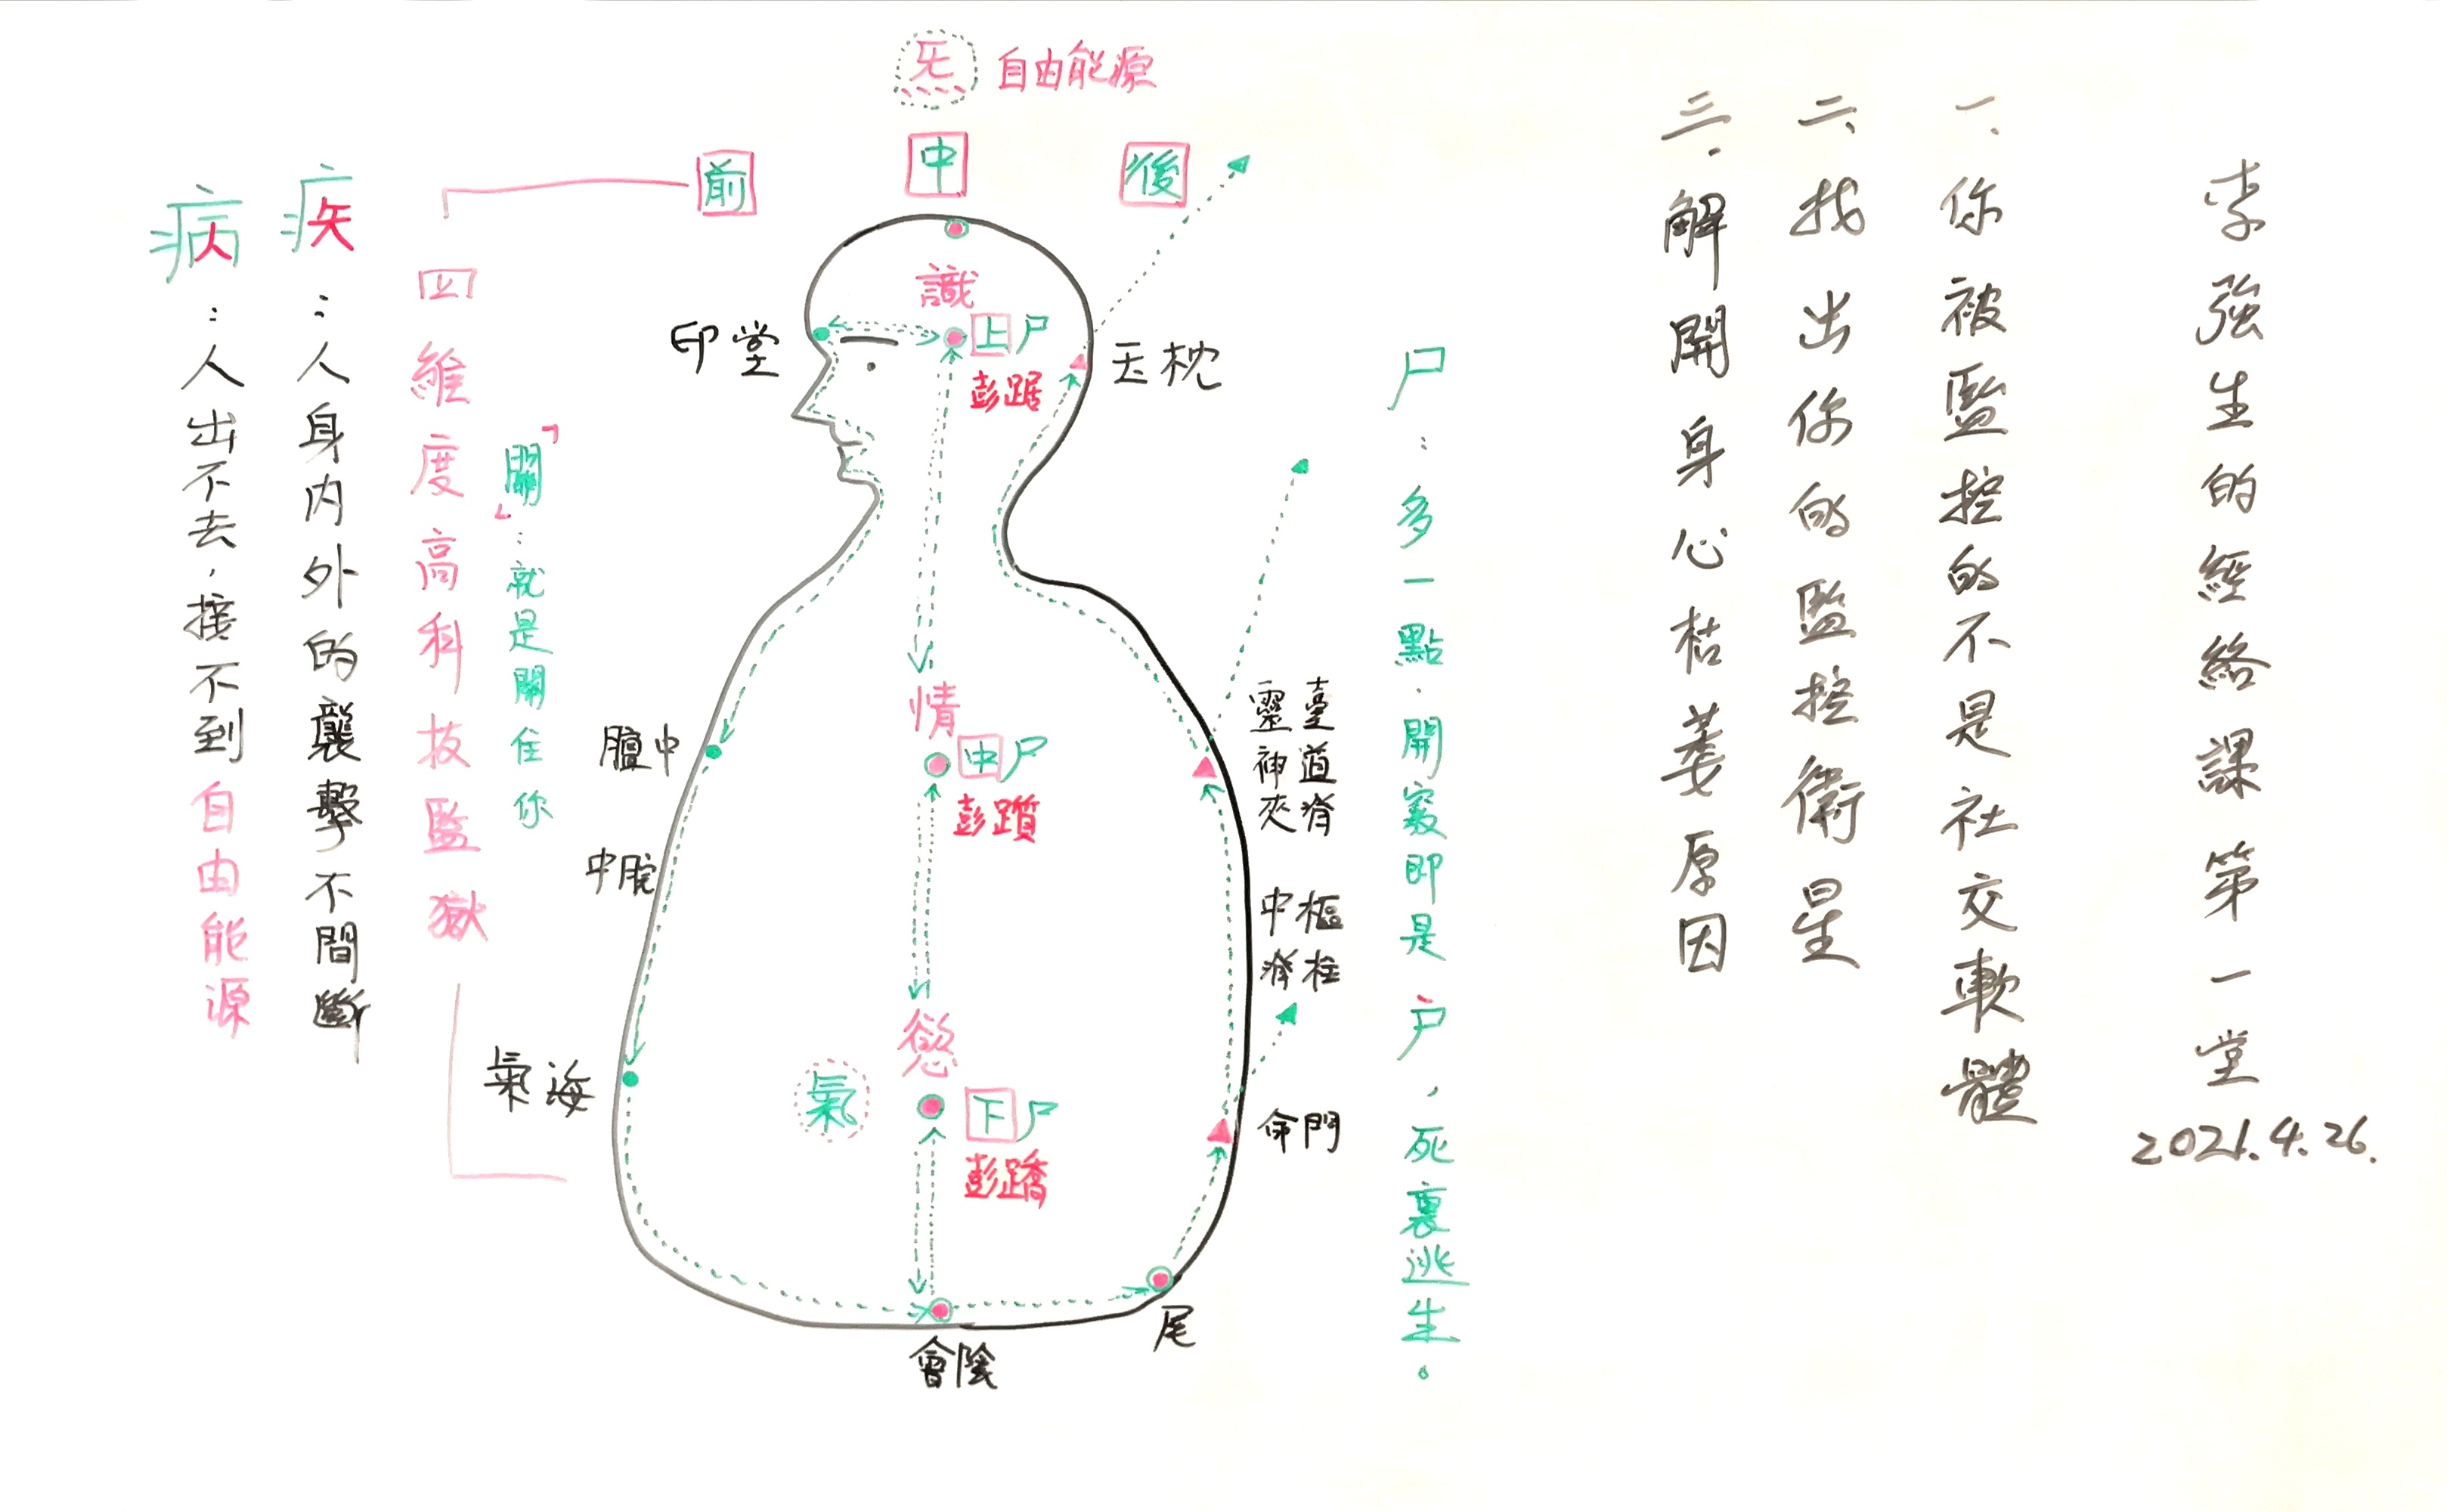 李強生的經絡課第一堂
2021.4.26.
一、你被監控的不是社交軟體
二、找出你的監控衛星
三.解開身心枯萎原因
尸：多一點．開竅即是户，死裏逃生。
炁 自由能源
前
中
後
識
上尸
彭踞
印堂
玉枕
情
中尸
彭躓
膻中
靈臺
神道
夾脊
中脘
中樞
脊柱
慾
氣
下尸
彭蹻
氣海
命門
會陰
尾
「關」：就是關住你
四維度高科技監獄
疾：人身内外的襲擊不間斷
病：人出不去，接不到自由能源